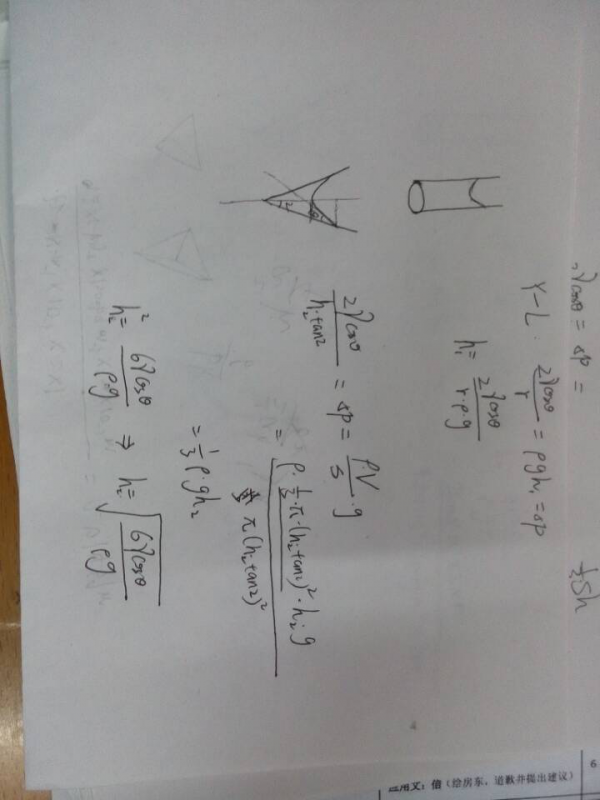 2γcosθ = ΔP =
½Sh
Y-L. 2γcosθ/r = ρgh₁ = ΔP
h₁ = 2γcosθ/r·ρ·g
2γcosθ/h₂·tan2 = ΔP = ρ·V/S·g
= ρ·⅓·π·(h₂tan2)²·h₂·g/π(h₂tan2)²
= ⅓ρ·gh₂
h₂² = 6γcosθ/ρg ⇒ h₂ = √(6γcosθ/ρg)
4
6
应用文：信（给房东，道歉并提出建议）